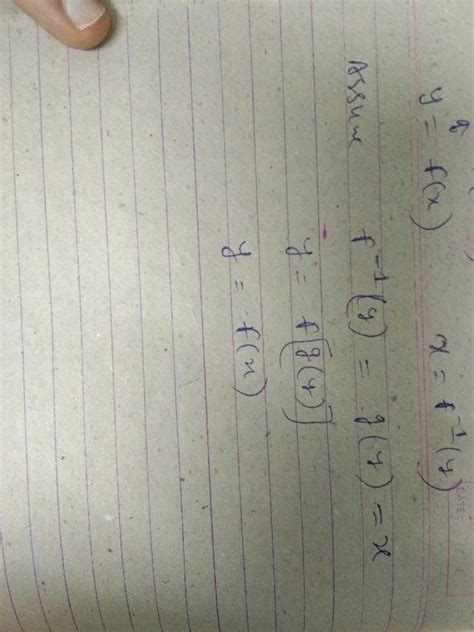 y = f(x)    x = f⁻¹(y)
Assume f⁻¹(y) = g(y) = x
y = f[g(y)]
y = f(x)